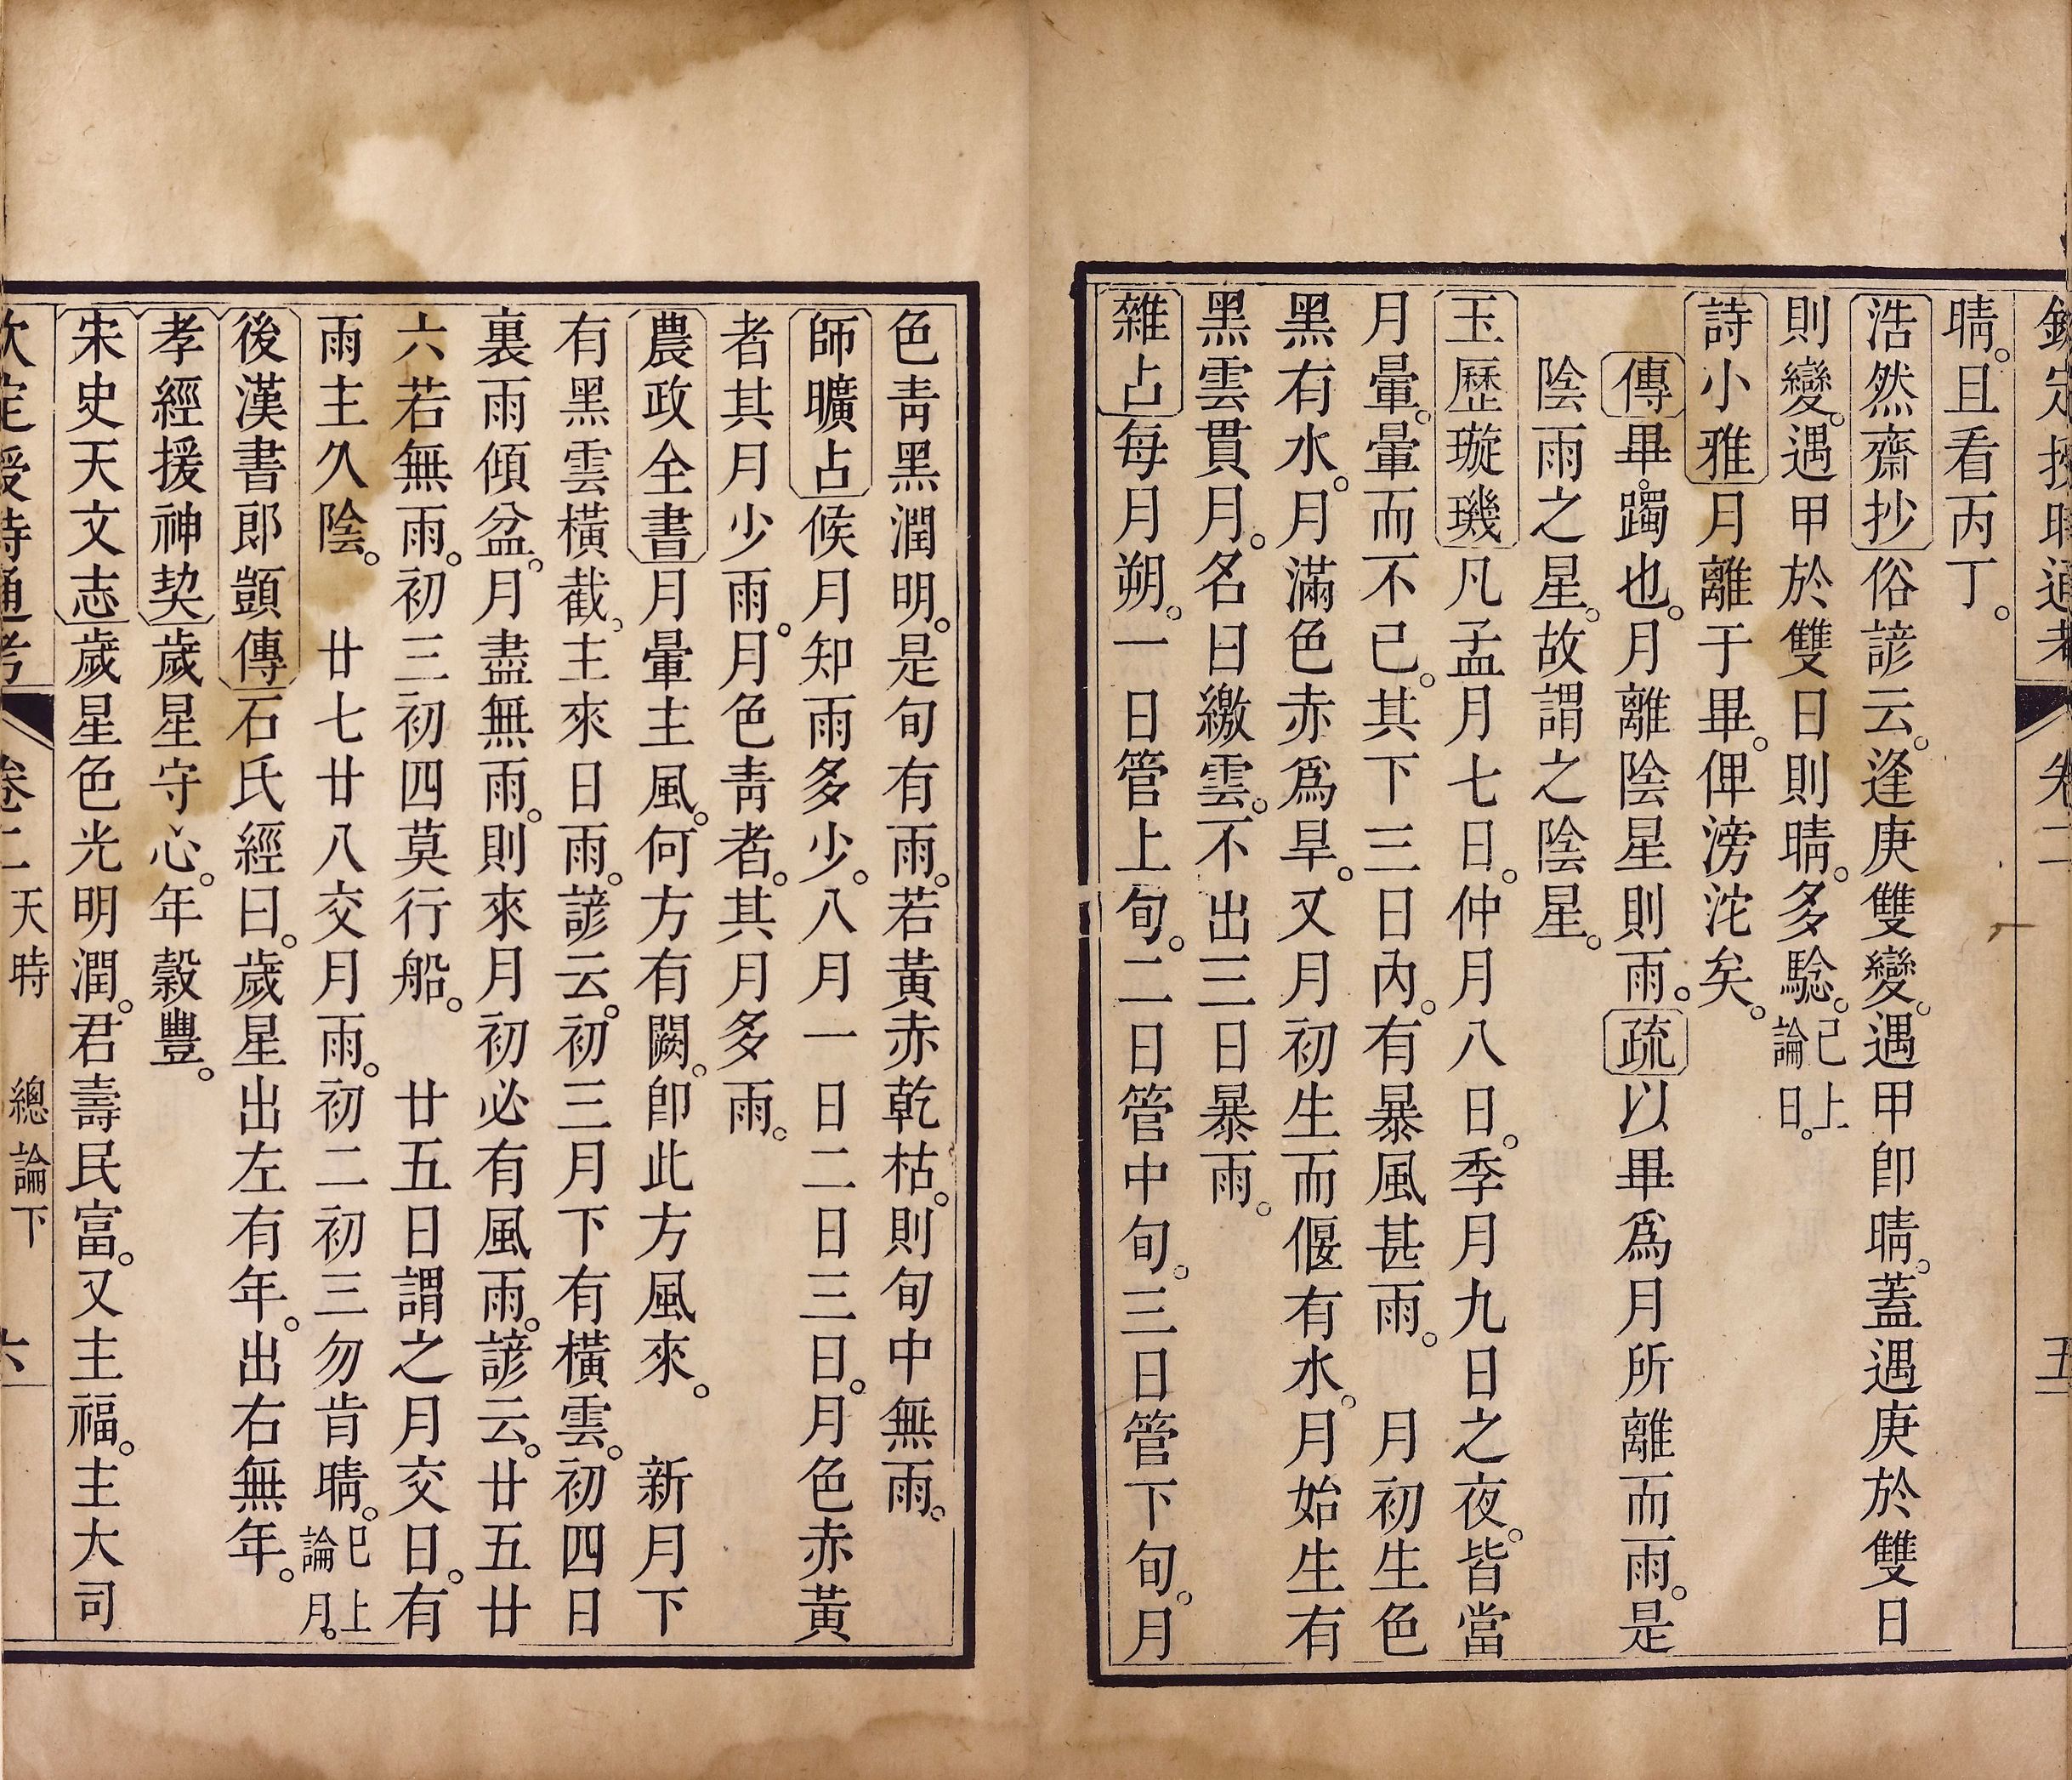 欽定授時通考 卷二 五
晴。且看丙丁。
浩然齋抄俗諺云。逢庚雙變。遇甲卽晴。蓋遇庚於雙日
則變。遇甲於雙日則晴。多騐。已上論日。
詩小雅月離于畢。俾滂沱矣。
傳畢。躅也。月離陰星則雨。疏以畢爲月所離而雨。是
陰雨之星。故謂之陰星。
玉歷璇璣凡孟月七日。仲月八日。季月九日之夜。皆當
月暈。暈而不已。其下三日內。有暴風甚雨。 月初生色
黑有水。月滿色赤爲旱。又月初生而偃有水。月始生有
黑雲貫月。名曰繳雲。不出三日暴雨。
雜占每月朔。一日管上旬。二日管中旬。三日管下旬。月
色靑黑潤明。是旬有雨。若黃赤乾枯。則旬中無雨。
師曠占候月知雨多少。八月一日二日三日。月色赤黃
者其月少雨。月色靑者。其月多雨。
農政全書月暈主風。何方有闕。卽此方風來。 新月下
有黑雲橫截。主來日雨。諺云。初三月下有橫雲。初四日
裏雨傾盆。月盡無雨。則來月初必有風雨。諺云。廿五廿
六若無雨。初三初四莫行船。 廿五日謂之月交日。有
雨主久陰。 廿七廿八交月雨。初二初三勿肯晴。已上論月。
後漢書郎顗傳石氏經曰。歲星出左有年。出右無年。
孝經援神契歲星守心。年穀豐。
宋史天文志歲星色光明潤。君壽民富。又主福。主大司
欽定授時通考 卷二 天時 總論下 六